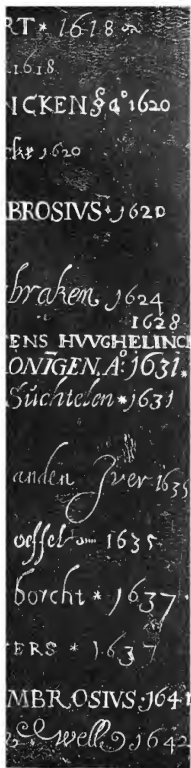 RT * 1618
1618
NICKEN§ a° 1620
cky 1620
BROSIVS * 1620
braken, 1624
1628
TENS HVVGHELINCK
CONĪGEN. A°: 1631 *
Sŭchtelen * 1631
anden Yver 1635
oeffel 1635
borcht * 1637 *
TERS * 1637
MBROSIVS : 1641
well 1642